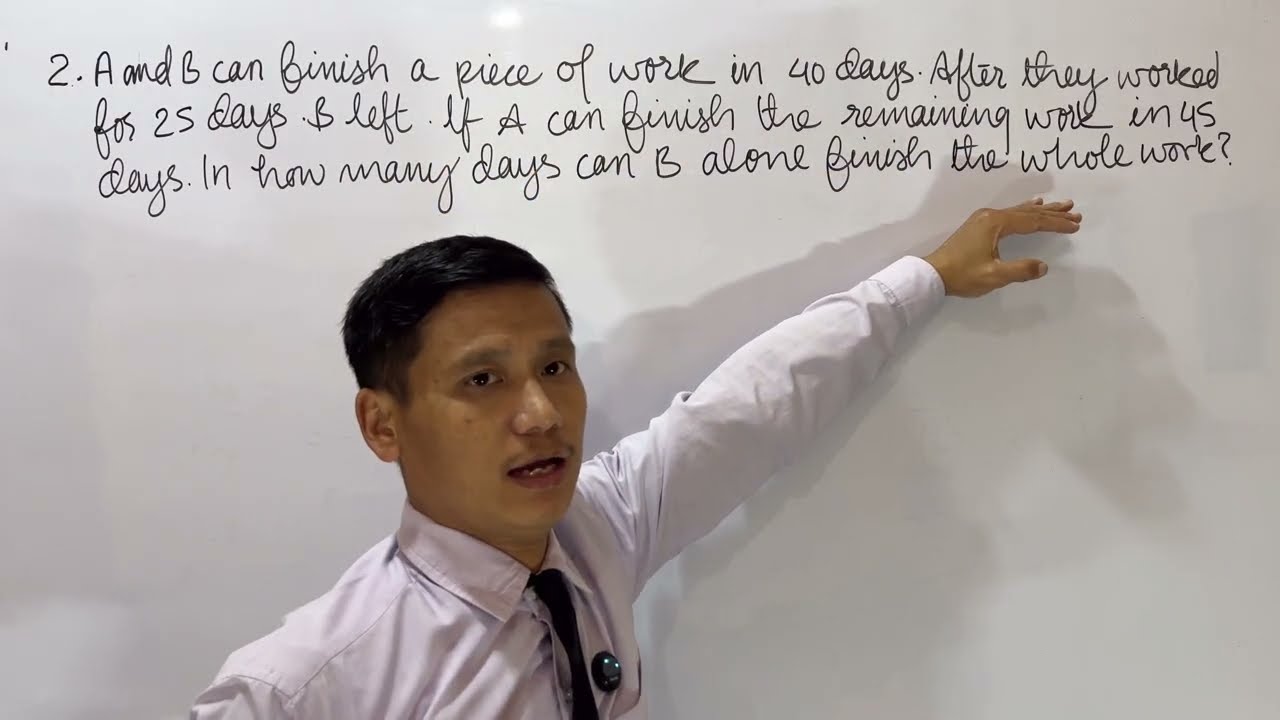 2. A and B can finish a piece of work in 40 days. After they worked
for 25 days. B left. If A can finish the remaining work in 45
days. In how many days can B alone finish the whole work?